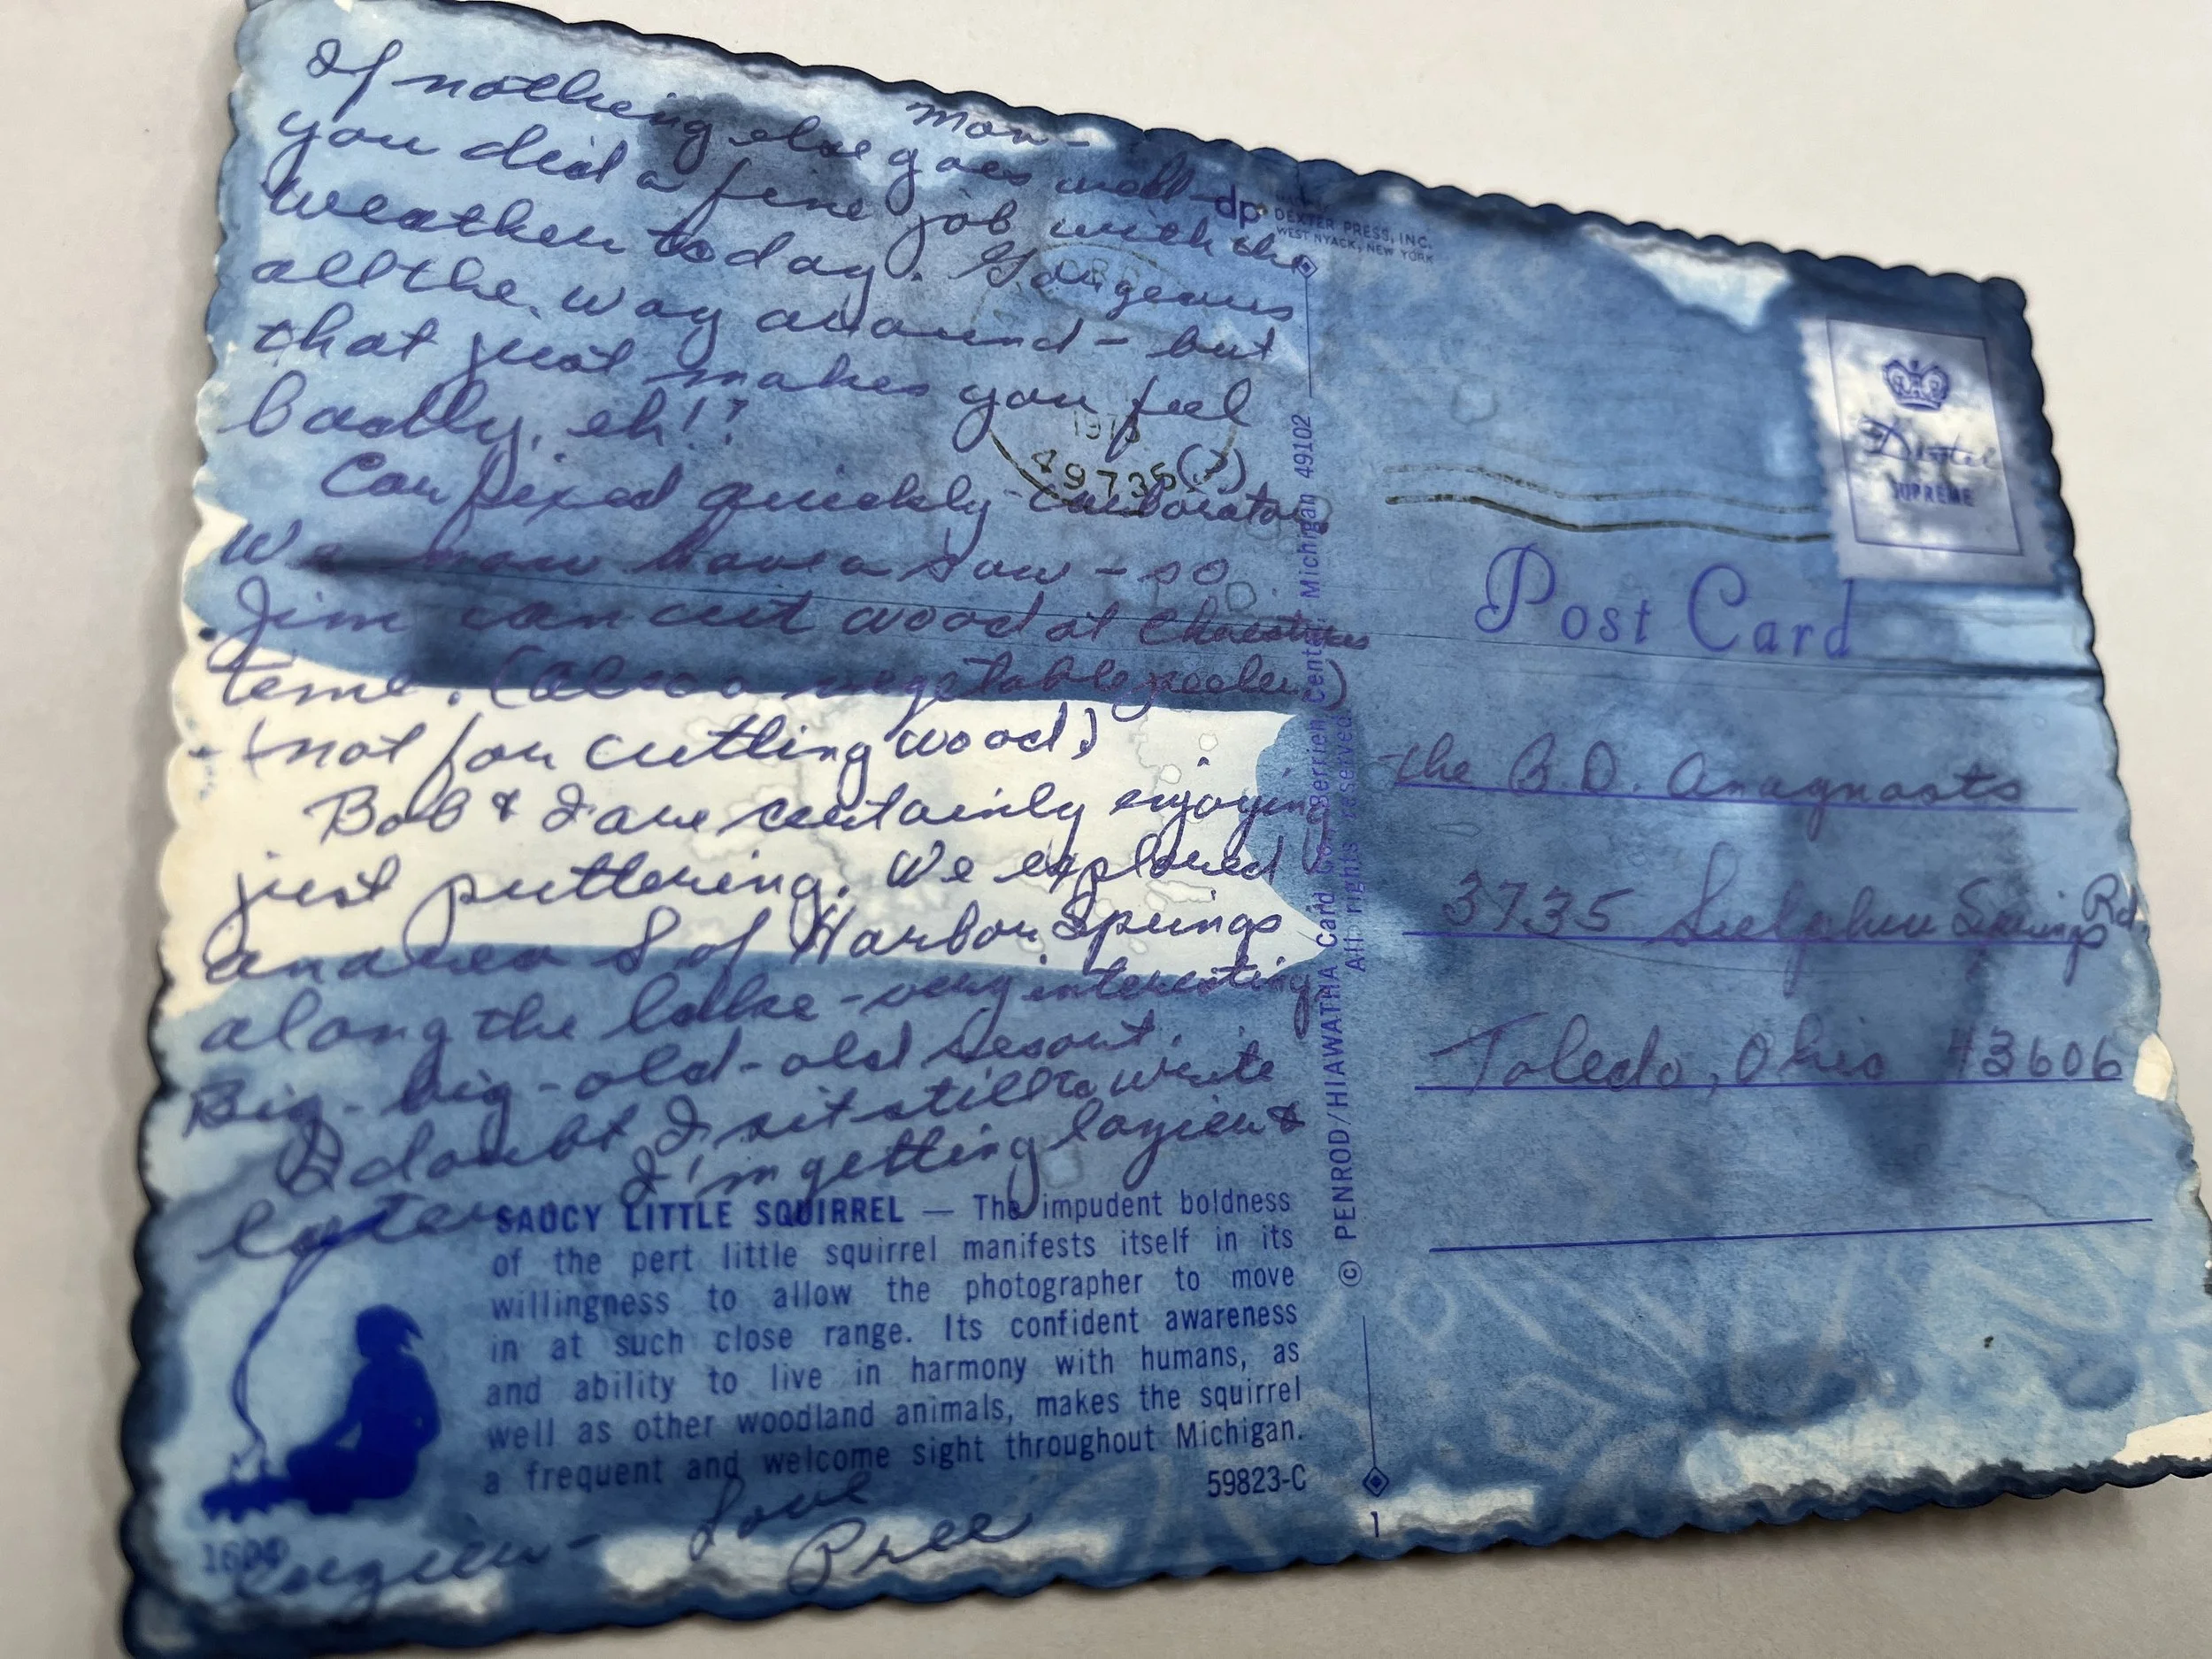 Mon-
If nothing else goes well-
you did a fine job with the
weather today. Gorgeous
all the way around - but
that just makes you feel
badly, eh!?
Car fixed quickly - carborator (?)
We now have a saw - so
Jim can cut wood at Christmas
time. (Also a vegetable peeler)
- (not for cutting wood)
Bob & I are certainly enjoying
just puttering. We explored
an area S of Harbor Springs
along the lake - very interesting
Big-big-old-old resort.
I doubt I sit still to write
I'm getting lazier &
later
SAUCY LITTLE SQUIRREL — The impudent boldness
of the pert little squirrel manifests itself in its
willingness to allow the photographer to move
in at such close range. Its confident awareness
and ability to live in harmony with humans, as
well as other woodland animals, makes the squirrel
a frequent and welcome sight throughout Michigan.
59823-C
Love
Pree
dp
DEXTER PRESS, INC.
WEST NYACK, NEW YORK
49735
© PENROD/HIAWATHA Card Co., Berrien Center, Michigan 49102
All rights reserved
1
Dexter
SUPREME
Post Card
the B.D. Anagnosts
3735 Sulphur Springs Rd.
Toledo, Ohio 43606